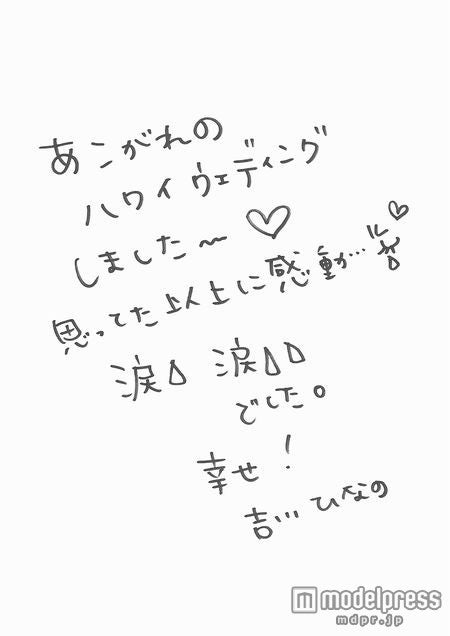 あこがれの
ハワイウェディング
しました〜♡
思ってた以上に感動…♡
涙 涙
でした。
幸せ!
吉… ひなの
modelpress
mdpr.jp